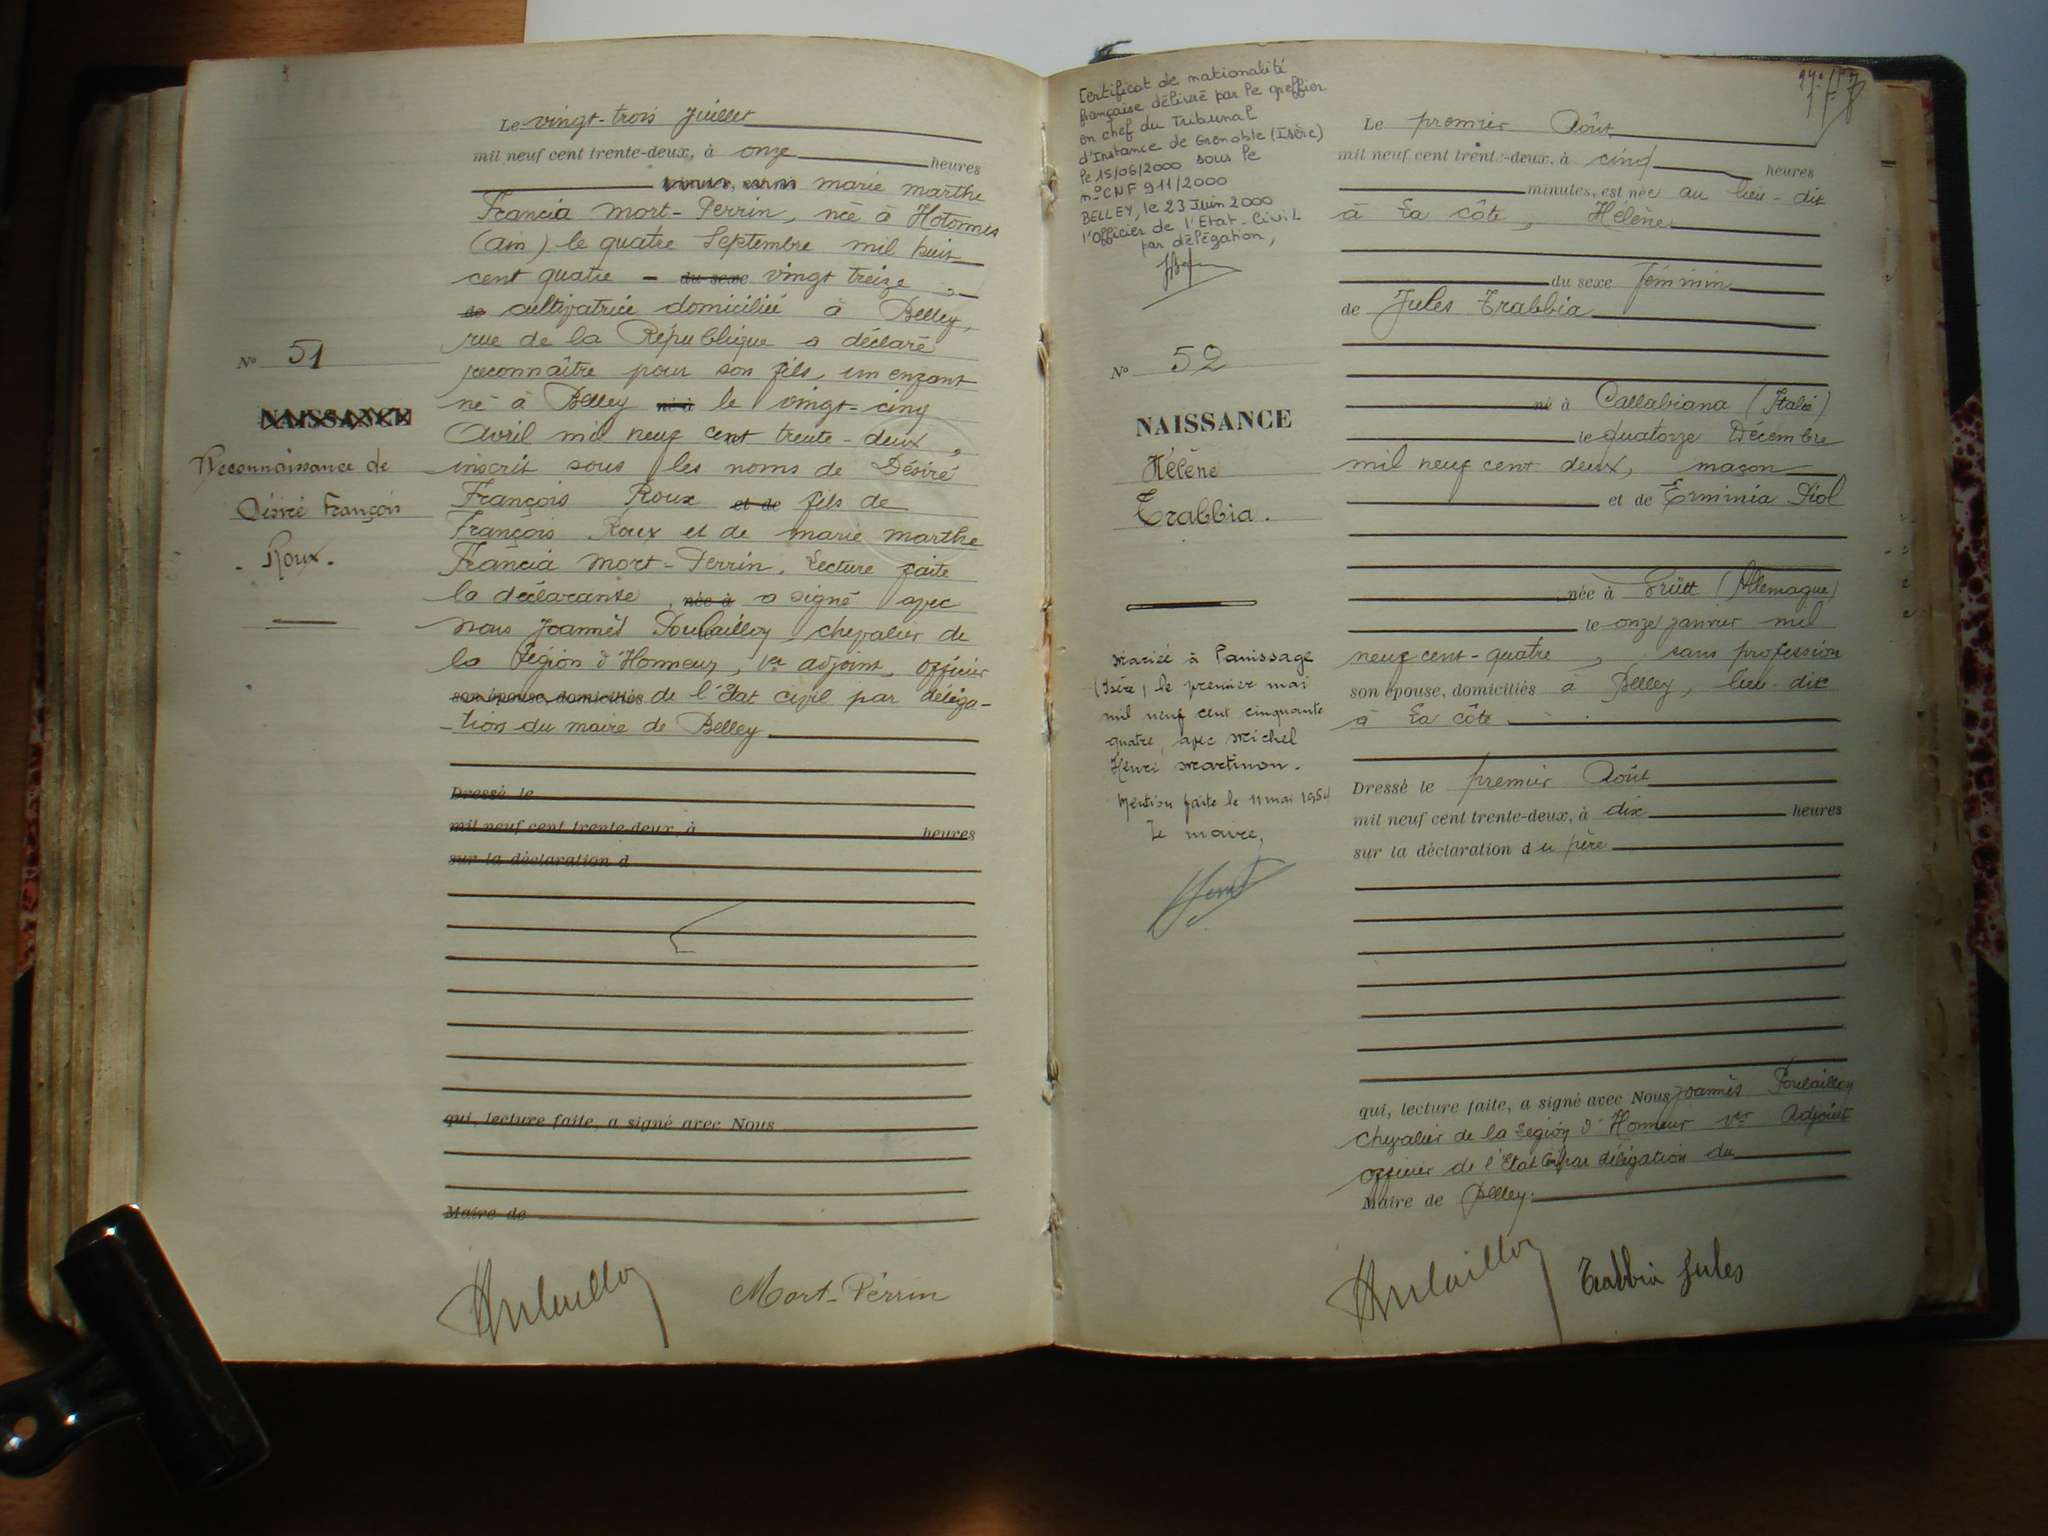 Le vingt-trois Juillet
mil neuf cent trente-deux, à onze heures
marie marthe
Francia Mort-Perrin, née à Hotonnes
(Ain) le quatre Septembre mil huit
cent quatre - du sexe vingt treize,
de cultivatrice domiciliée à Belley,
rue de la République a déclaré
reconnaître pour son fils, un enfant
né à Belley né à le vingt-cinq
Avril mil neuf cent trente-deux,
inscrit sous les noms de Désiré
François Roux et de fils de
François Roux et de marie marthe
Francia Mort-Perrin. Lecture faite
la déclarante, née à a signé avec
Nous Joannès Poulailloy, chevalier de
la Légion d'Honneur, 1er adjoint, officier
son épouse, domiciliés de l'Etat civil par déléga-
-tion du maire de Belley
Dressé le
mil neuf cent trente-deux, à heures
sur la déclaration d
qui, lecture faite, a signé avec Nous
Maire de
Mort-Perrin
No 51
NAISSANCE
Reconnaissance de
Désiré François
- Roux.
Certificat de nationalité
française délivré par le greffier
en chef du Tribunal
d'Instance de Grenoble (Isère)
le 15/06/2000 sous le
n° CNF 911/2000
BELLEY, le 23 Juin 2000
l'Officier de l'Etat-Civil
par délégation,
No 52
NAISSANCE
Hélène
Trabbia.
Mariée à Panissage
(Isère) le premier mai
mil neuf cent cinquante
quatre, avec Michel
Henri Martinon.
Mention faite le 11 mai 1954
Le maire,
Le premier Août
mil neuf cent trente-deux, à cinq heures
minutes, est née au lieu-dit
à La côte, Hélène
du sexe féminin
de Jules Trabbia
né à Callabiana (Italie)
le quatorze Décembre
mil neuf cent deux, maçon
et de Erminia Piol
née à (Allemagne)
le onze janvier mil
neuf cent-quatre, sans profession
son épouse, domiciliés à Belley, lieu-dit
à La côte
Dressé le premier Août
mil neuf cent trente-deux, à dix heures
sur la déclaration du père
qui, lecture faite, a signé avec Nous Joannès Poulailloy
Chevalier de la Légion d'Honneur 1er Adjoint
Officier de l'Etat Civil par délégation du
Maire de Belley.
Trabbia Jules